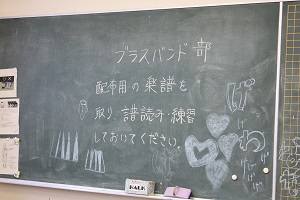 ブラスバンド部
配布用の楽譜を
取り、譜読み・練習
しておてください。
げ
わ
げ